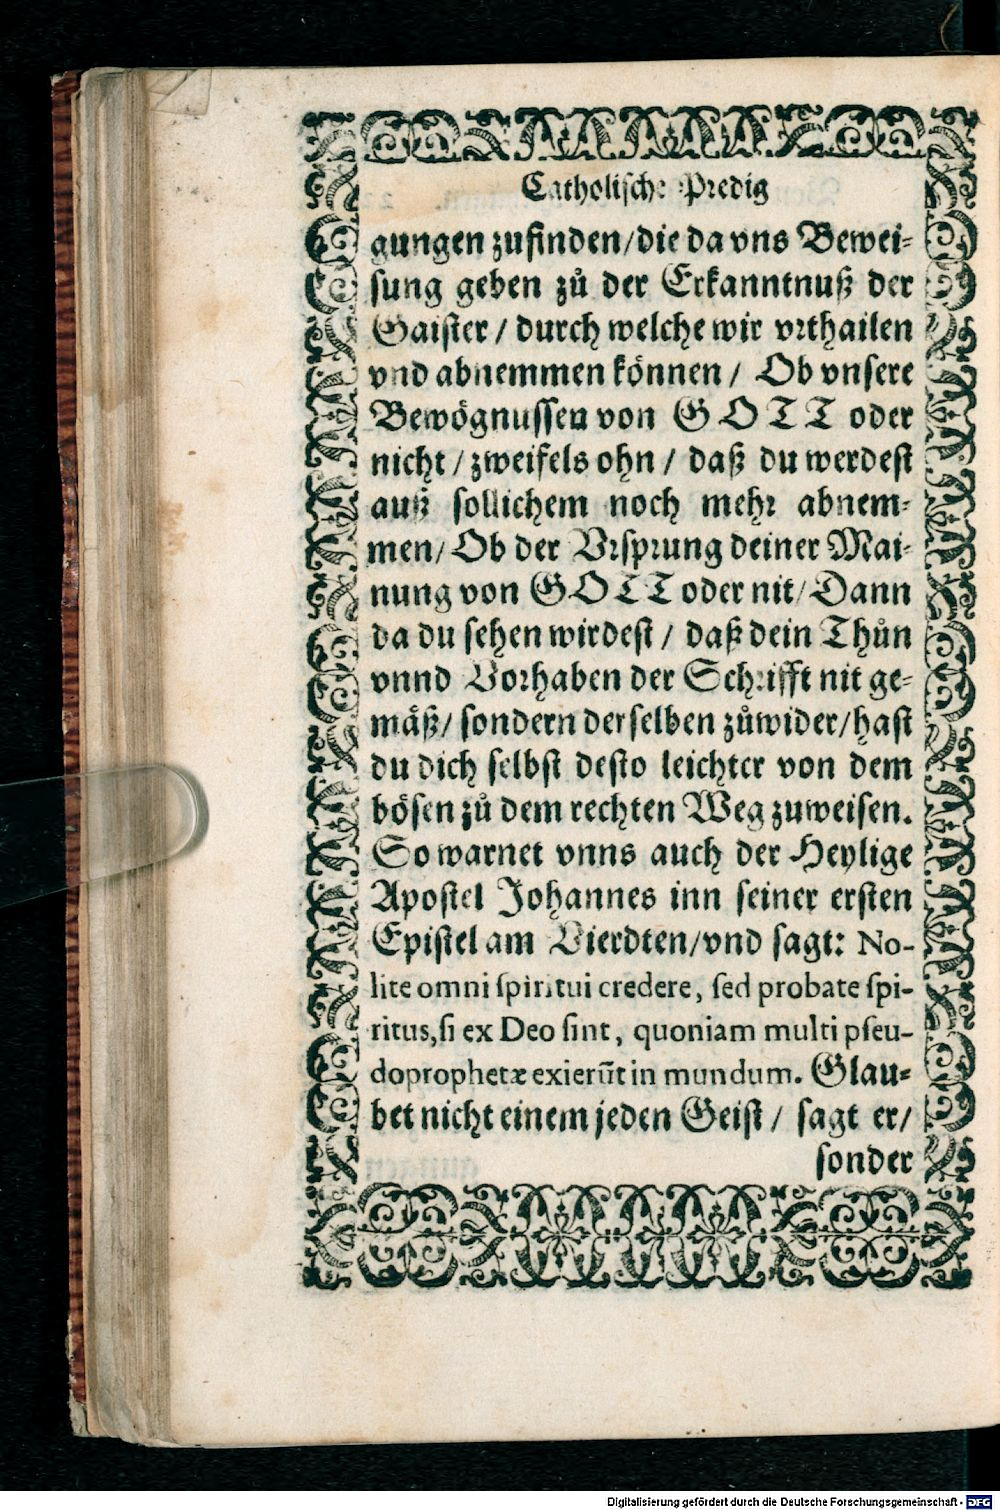 Catholische Predig
gungen zufinden/die da vns Bewei⸗
sung geben zů der Erkanntnuß der
Gaister / durch welche wir vrthailen
vnd abnemmen können / Ob vnsere
Bewögnussen von GOTT oder
nicht / zweifels ohn / daß du werdest
auß sollichem noch mehr abnem⸗
men/ Ob der Vrsprung deiner Mai⸗
nung von GOTT oder nit/ Dann
da du sehen wirdest / daß dein Thůn
vnnd Vorhaben der Schrifft nit ge⸗
mäß/ sondern derselben zůwider/hast
du dich selbst desto leichter von dem
bösen zů dem rechten Weg zuweisen.
So warnet vnns auch der Heylige
Apostel Johannes inn seiner ersten
Epistel am Vierdten/vnd sagt: No-
lite omni spiritui credere, sed probate spi-
ritus, si ex Deo sint, quoniam multi pseu-
doprophetæ exierūt in mundum. Glau⸗
bet nicht einem jeden Geist / sagt er/
sonder
Digitalisierung gefördert durch die Deutsche Forschungsgemeinschaft - DFG